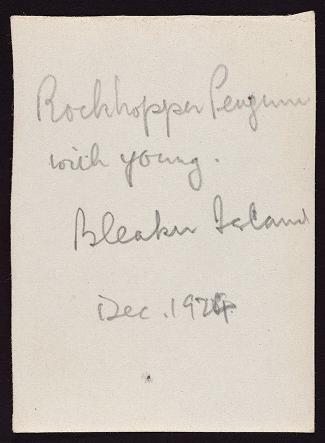 Rockhopper Penguin
with young.
Bleaker Island
Dec. 1924